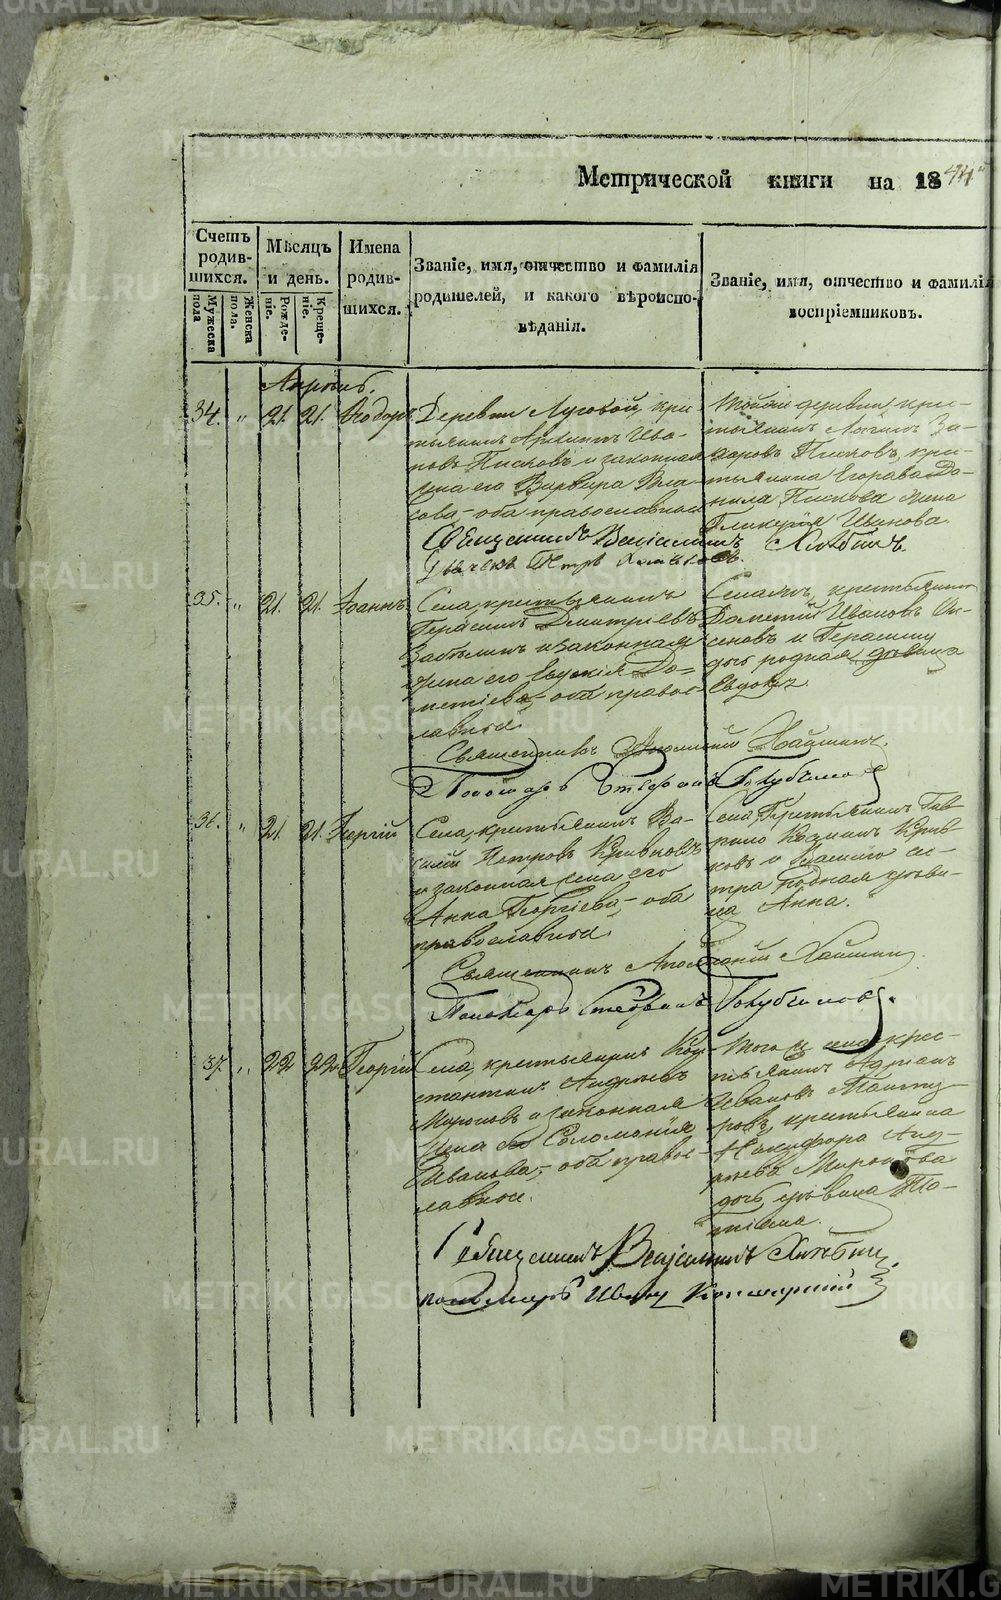 Метрической книги на 1844
Счетъ родив-шихся.
Мужеска пола
Женска пола.
Мѣсяцъ и день.
Рожде-ніе.
Креще-ніе.
Имена родив-шихся.
Званіе, имя, отчество и фамилія
родителей, и какого вѣроиспо-
вѣданія.
Званіе, имя, отчество и фамилія
воспріемниковъ.
Апрѣль.
34. " 21. 21. Ѳеодоръ
Деревни Луговой, кре-
стьянинъ Ива-
новъ и законная
жена его Варвара Вла-
сова - оба православные
Тойже деревни крес-
тьянинъ За-
харовъ кре-
стьянина Да-
нила жена
Гликерія Иванова.
Священникъ Веніаминъ Хлѣбинъ.
Петръ
35. " 21. 21. Іоаннъ
Села, крестьянинъ
Герасимъ Дмитріевъ
и законная
жена его Евдокія До-
метіева, оба правос-
лавные.
Села, крестьянинъ
Дометій Ивановъ
и Герасима
дочь родная дѣвица
Священникъ Аполлоній Хайминъ.
Пономарь Стефанъ Голубчиковъ
36. " 21. 21. Георгій
Села, крестьянинъ Ва-
силій Петровъ Кривковъ
и законная жена его
Анна Георгіева, - оба
православные.
Села, крестьянинъ Гав-
рило Козминъ Крив-
ковъ и сес-
тра родная дѣви-
ца Анна.
Священникъ Аполлоній Хайминъ.
Пономарь Стефанъ Голубчиковъ.
37. " 22. 22. Георгій
Села, крестьянинъ Кон-
стантинъ Андреевъ
Мироновъ и законная
жена его Соломонія
Иванова, - оба правос-
лавные.
Того же села крес-
тьянинъ Адріанъ
Ивановъ
крестьянина
Никифора Анд-
реева Миронова
дочь, дѣвица Та-
тіана.
Священникъ Веніаминъ Хлѣбинъ.
пономарь Иванъ
METRIKI.GASO-URAL.RU